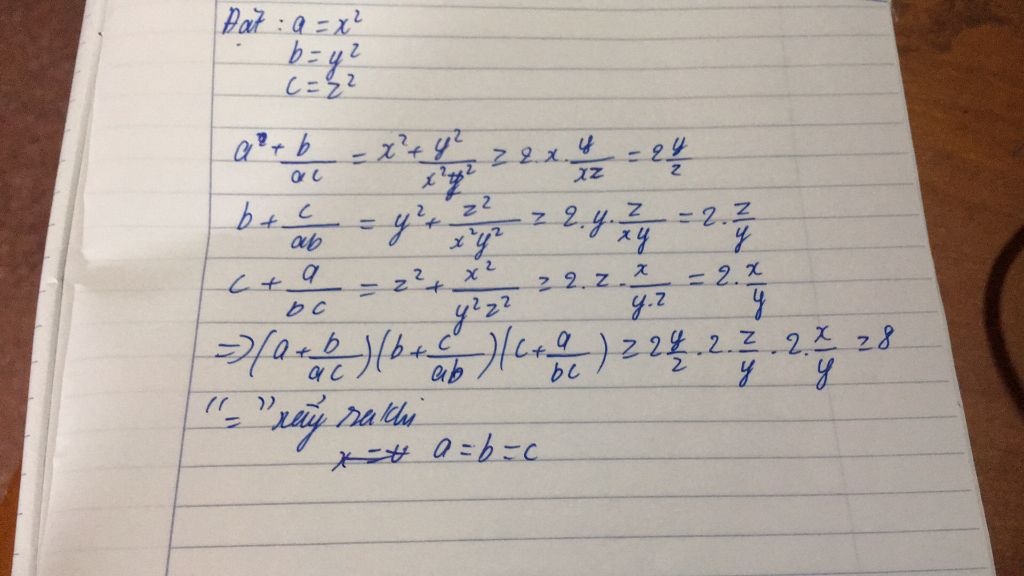 Đặt : a = x²
b = y²
c = z²
a + b/ac = x² + y²/x²z² ≥ 2 x . y/xz = 2 y/z
b + c/ab = y² + z²/x²y² ≥ 2 . y . z/xy = 2 . z/y
c + a/bc = z² + x²/y²z² ≥ 2 . z . x/y.z = 2 . x/y
=> (a + b/ac)(b + c/ab)(c + a/bc) ≥ 2 y/z . 2 . z/y . 2 . x/y ≥ 8
"=" xảy ra khi
a = b = c